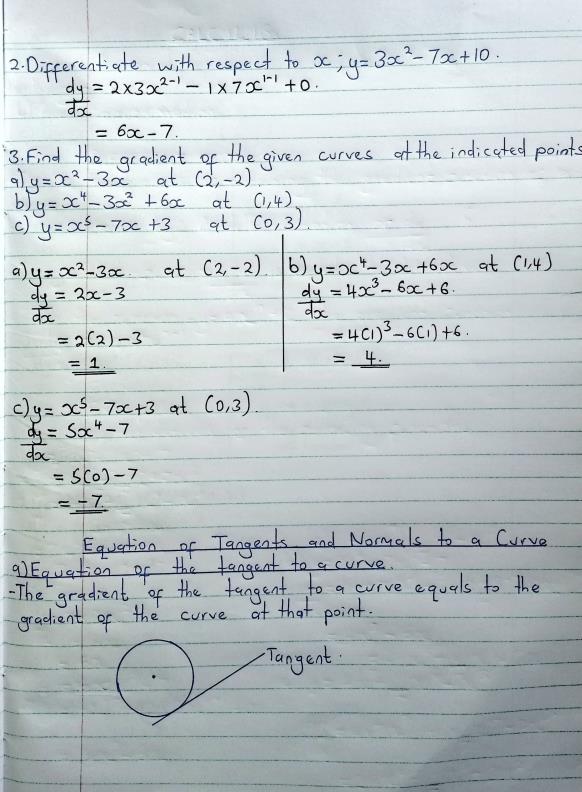 2. Differentiate with respect to x; y = 3x² - 7x + 10.
dy/dx = 2x3x²⁻¹ - 1x7x¹⁻¹ + 0.
= 6x - 7.
3. Find the gradient of the given curves at the indicated points
a) y = x² - 3x at (2, -2)
b) y = x⁴ - 3x² + 6x at (1, 4)
c) y = x⁵ - 7x + 3 at (0, 3).
a) y = x² - 3x at (2, -2)
dy/dx = 2x - 3
= 2(2) - 3
= 1.
b) y = x⁴ - 3x + 6x at (1, 4)
dy/dx = 4x³ - 6x + 6.
= 4(1)³ - 6(1) + 6.
= 4.
c) y = x⁵ - 7x + 3 at (0, 3).
dy/dx = 5x⁴ - 7
= 5(0) - 7
= -7.
Equation of Tangents and Normals to a Curve
a) Equation of the tangent to a curve.
- The gradient of the tangent to a curve equals to the
gradient of the curve at that point.
Tangent.